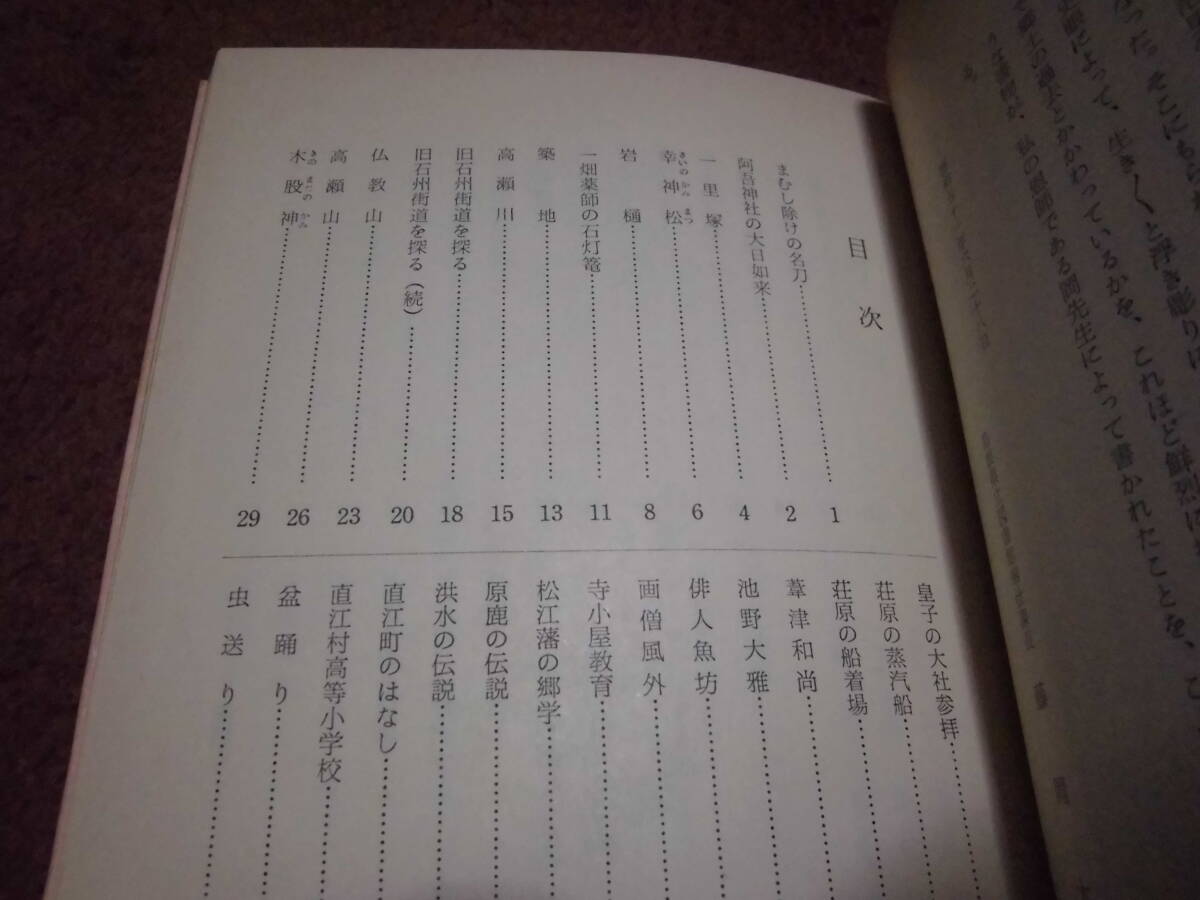 った。そこにもら
史眼によって、生き〱と浮き彫りに
て郷土の過去とかかわっているかを、これほど鮮烈に
うな書物が、私の恩師である岡先生によって書かれたことを、こ
る。
目次
まむし除けの名刀……1
阿吾神社の大日如来……2
一里塚……4
幸神松……6
さいのかみまつ
岩樋……8
一畑薬師の石灯篭……11
築地……13
高瀬川……15
旧石州街道を探る……18
旧石州街道を探る(続)……20
仏教山……23
高瀬山……26
木股神……29
きのまたのかみ
皇子の大社参拝……
荘原の蒸汽船……
荘原の船着場……
葦津和尚……
池野大雅……
俳人魚坊……
画僧風外……
寺小屋教育……
松江藩の郷学……
原鹿の伝説……
洪水の伝説……
直江町のはなし……
直江村高等小学校……
盆踊り……
虫送り……